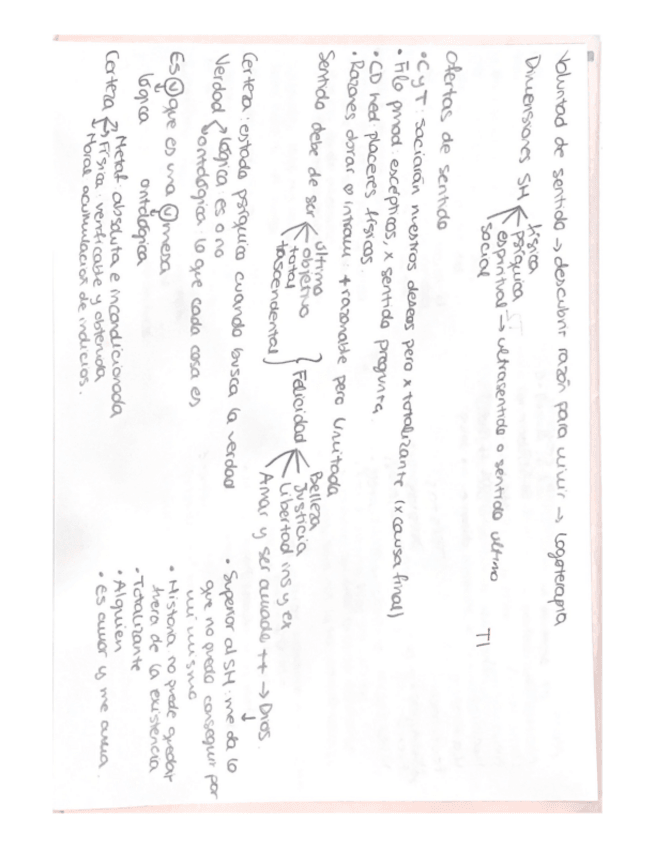 Voluntad de sentido → descubrir razón para vivir → logoterapia
T1
Dimensiones SH
física
psíquica
espiritual → ultrasentido o sentido último
social
Ofertas de sentido
• CyT: saciarán nuestros deseos pero x totalizante (x causa final)
• Filo pmod: escépticos, x sentido pregunta
• CD hed: placeres físicos
• Razones obrar intram: + razonable pero limitada
Sentido debe de ser
último
objetivo
total
trascendental
Felicidad
Belleza
Justicia
Libertad ins y ex
Amar y ser amado ++ → Dios.
• Superior al SH: me da lo
que no puedo conseguir por
mi mismo
• Historia no puede quedar
fuera de la existencia
• Totalizante
• Alguien
• Es amor y me ama.
Certeza: estado psíquico cuando busca la verdad
Verdad
lógica es o no
ontológica: lo que cada cosa es
Es V que es una V mesa
lógica ontológica
Certeza
Metaf: absoluta e incondicionada
Física: verificable y obtenida
Moral acumulación de indicios.